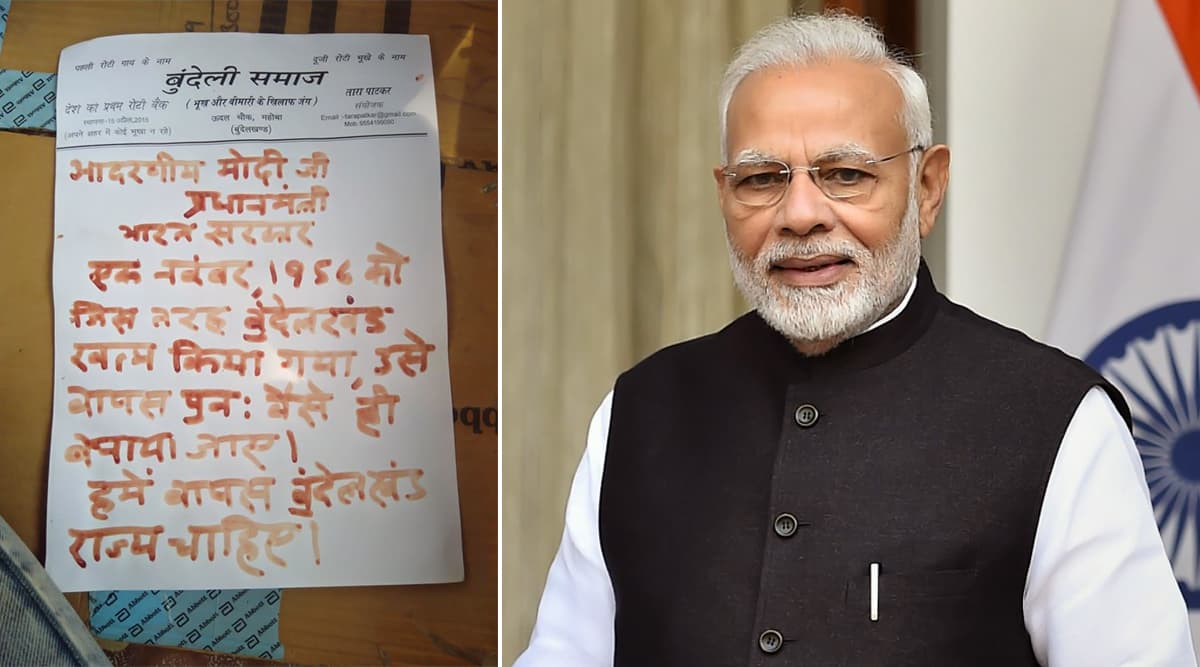 पहली रोटी गाय के नाम
दूजी रोटी भूखे के नाम
बुंदेली समाज
देश का प्रथम रोटी बैंक
स्थापना-15 अप्रैल,2015
(अपने शहर में कोई भूखा न रहे)
(भूख और बीमारी के खिलाफ जंग)
ऊदल चौक, महोबा
(बुंदेलखण्ड)
तारा पाटकर
संयोजक
Email -tarapatkar@gmail.com
Mob. 9554199090
आदरणीय मोदी जी
प्रधानमंत्री
भारत सरकार
एक नवंबर, १९५६ को
जिस तरह बुंदेलखंड
खत्म किया गया, उसे
वापस पुनः वैसे ही
बनाया जाए।
हमें वापस बुंदेलखंड
राज्य चाहिए।
Abbott
Abbott
Abbott
Abbott